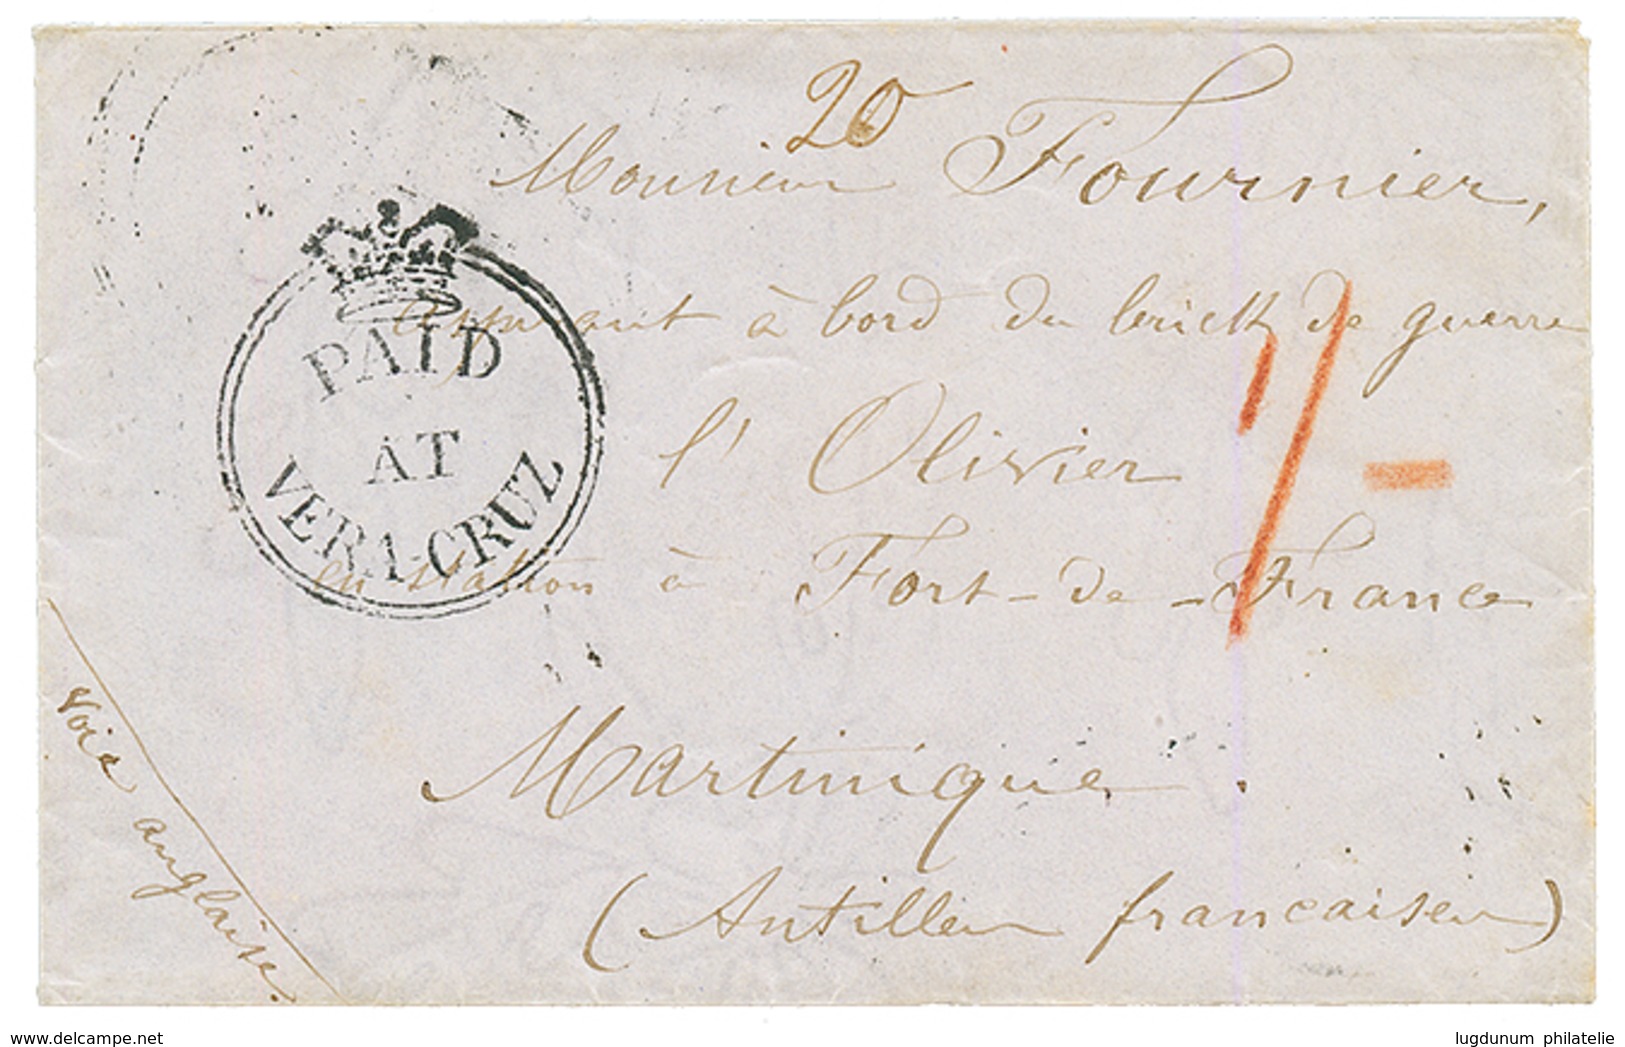 20
Monsieur Fournier,
PAID
AT
VERA-CRUZ
à bord du brick de guerre
l'Olivier
en station à Fort-de-France
1/-
Martinique.
(Antilles françaises)
voie anglaise.
delcampe.net
lugdunum philatelie